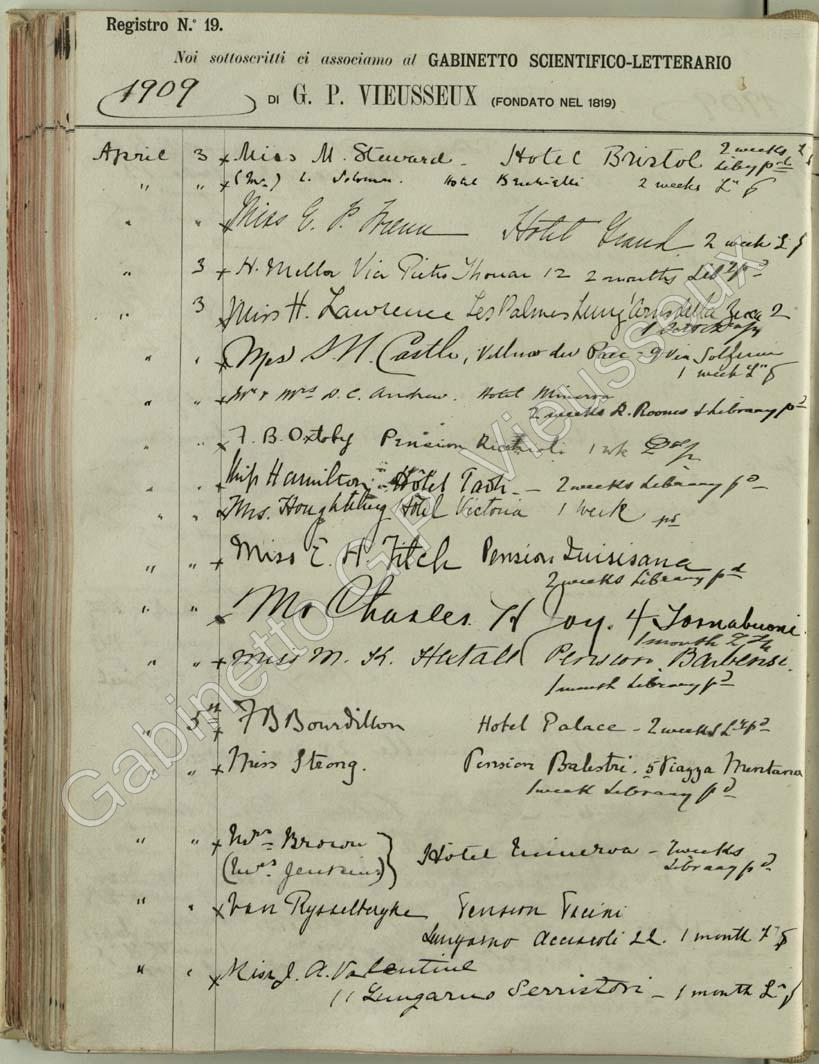 Registro N.° 19.
Noi sottoscritti ci associamo al GABINETTO SCIENTIFICO-LETTERARIO
1909
DI G. P. VIEUSSEUX (FONDATO NEL 1819)
April 3 x Miss M. Steward - Hotel Bristol 2 weeks
Liby pd
" " x (Mrs) L. Solomon. Hotel 2 weeks
" " x Miss G. P. Hotel Grand 2 week
" 3 x H. Mellor Via Pietro Thouar 12 2 months Liby pd
" 3 x Miss H. Lawrence Les Palmes Lung'Arno della Zecca 2
" " x S. N. Castle, 9 Via Solferino
1 week
" " x Mr & Mrs D. C. Andrew. Hotel Minerva
2 weeks R. Rooms & Library pd
" " x F. B. Oxtoby Pension 1 wk
" " x Miss Hamilton Hôtel - 2 weeks Library pd
" " x Mrs. Houghteling Hotel Victoria 1 week pd
" " x Miss E. H. Fitch Pension Quisisana
2 weeks Library pd
" " x Mr Charles H Joy. 4 Tornabuoni
1 month
" " x Miss M. K. Pension Barbensi.
1 month Library pd
" 5th x F B Bourdillon Hotel Palace - 2 weeks Ly pd
" " x Miss Strong. Pension Balestri. 5 Piazza Mentana
1 week Library pd
" " x Mrs Brown
(Mrs Jenkins) } Hotel Minerva - 2 weeks
Library pd
" " x Van Rysselberghe Pension Picini
Lungarno Acciaioli 22. 1 month
" " x Miss J. A. Valentine
11 Lungarno Serristori - 1 month
Gabinetto G.P. Vieusseux